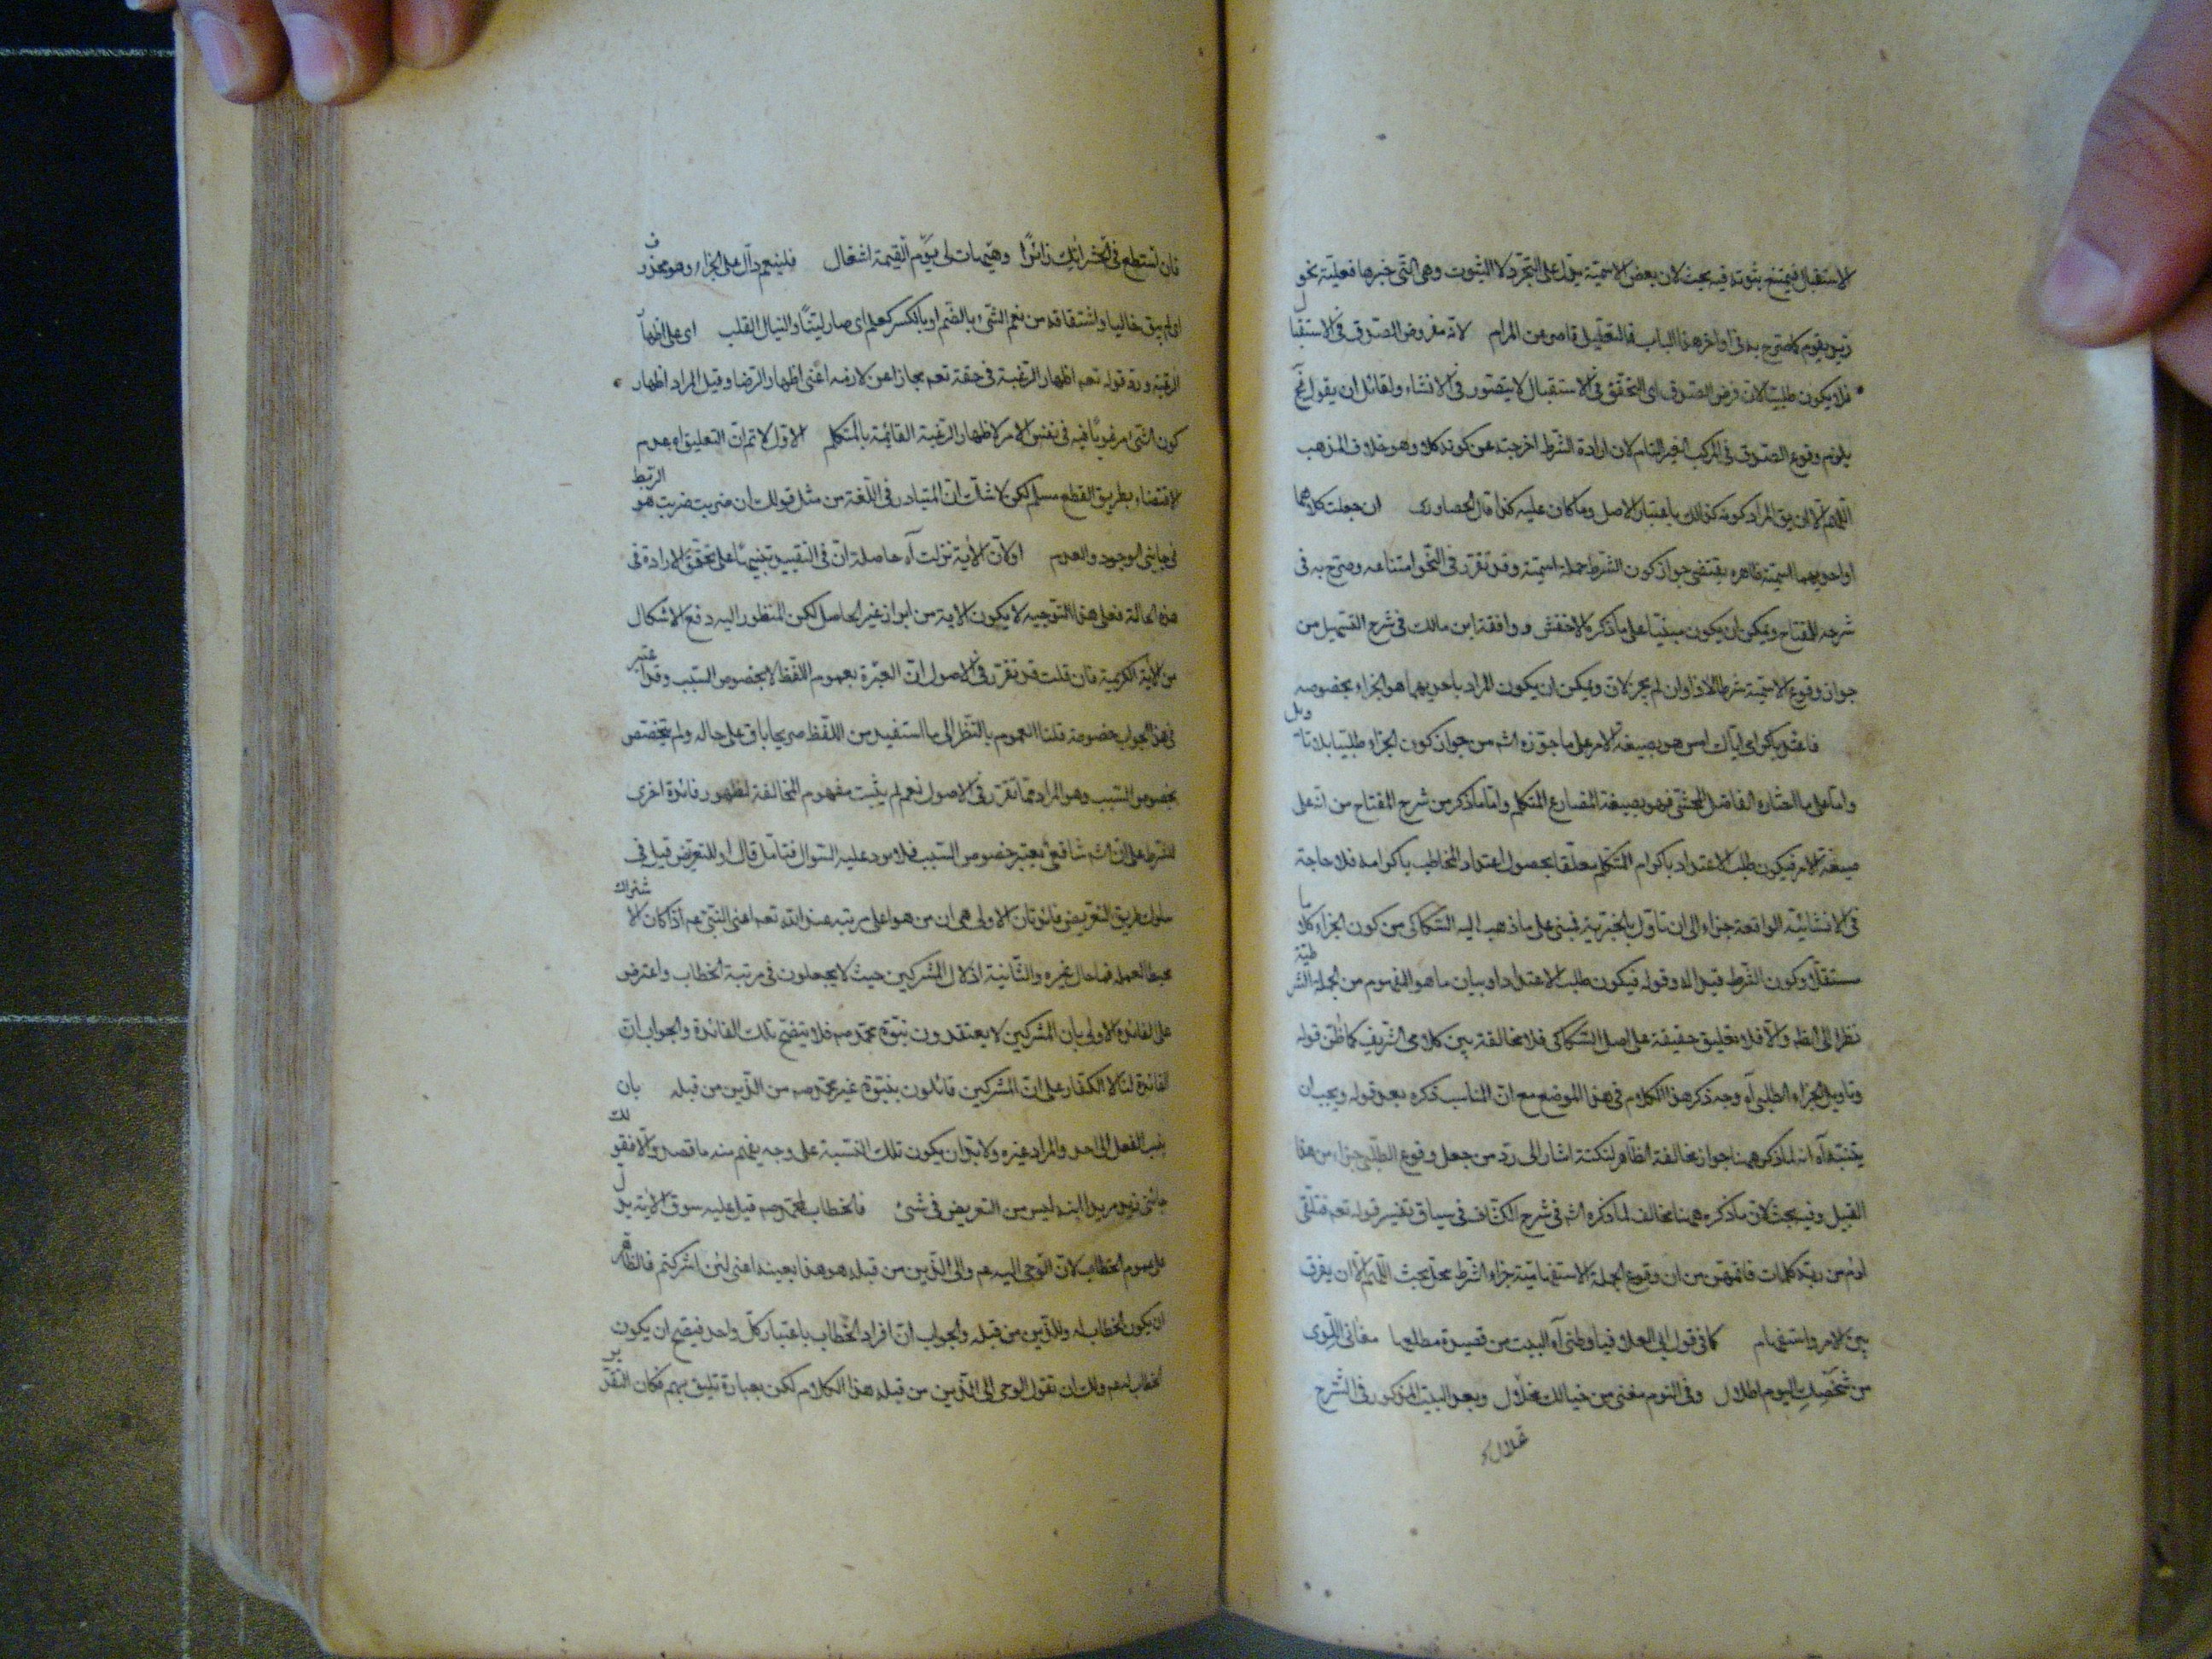 الاستقبال فيمتنع ثبوته فيه بحث لان بعض الاسمية يدل على التجرد لا الثبوت وهى التى خبرها فعلية نحو
زيد يقوم كما صرح به فى اواخر هذا الباب فالتعليل قاصر عن المرام لانه مفروض الصدق فى الاستقبال
فلا يكون طلبيا لان فرض الصدق اى التحقق فى الاستقبال لا يتصور فى الانشاء ولقائل ان يقول نح
يلزم وقوع الصدق فى المركب الغير التام لان اداة الشرط اخرجته عن كونه كلاما وهو خلاف المذهب
اللهم الا ان يق المراد كونه كذلك باعتبار الاصل وما كان عليه كذا قال الحصاورى ان جعلت كلاهما
او احديهما اسمية ظاهره يقتضى جواز كون الشرط جملة اسمية وقد تقرر فى النحو امتناعه وصرح به فى
شرحه للمفتاح ويمكن ان يكون مبنيا على ما ذكره الاخفش و وافقه ابن مالك فى شرح التسهيل من
جواز وقوع الاسمية شرطا لاذا وان لم يجز لان ويمكن ان يكون المراد باحديهما هو الجزاء بخصوصه
فاعتد باكرامى اياك امس هو بصيغة الامر على ما جوزه الشم من جواز كون الجزاء طلبيا بلا تاويل
واما على ما اختاره الفاضل المحشى فهو بصيغة المضارع المتكلم واما ما ذكر من شرح المفتاح من انه على
صيغة الامر فيكون طلب الاعتداد باكرام المتكلم معلقا بحصول اعتداد المخاطب باكرامه فلا حاجة
فى الانشائية الواقعة جزاء الى ان تاول بالخبرية فمبنى على ما ذهب اليه السكاكى من كون الجزاء كلاما
مستقلا وكون الشرط قيدا له وقوله فيكون طلب الاعتداد اه بيان ما هو المفهوم من الجملة الشرطية
نظرا الى الظ والا فلا تعليق حقيقة على اصل السكاكى فلا مخالفة بين كلامى الشريف كما ظن قوله
وتاويل الجزاء الطلبى آه وجه ذكر هذا الكلام فى هذا الموضع مع ان المناسب ذكره بعد قوله ويجب ان
يتنبه آه انه لما ذكر ههنا جواز مخالفة الظاهر لنكتة اشار الى رد من جعل وقوع الطلبى جزاء من هذا
القبيل وفيه بحث لان ما ذكره ههنا مخالف لما ذكره الشم فى شرح الكشاف فى سياق تفسير قوله تعم فتلقى
ادم من ربه كلمات فاتمهن من ان وقوع الجملة الاستفهامية جزاء الشرط محل بحث اللهم الا ان يفرق
بين الامر واستفهام كما فى قول ابى العلا فيا وطنى آه البيت من قصيدة مطلعها مغانى اللوى
من شخصك اليوم اطلال وفى النوم مغنى من خيالك محلال وبعد البيت المذكور فى الشرح
فان تستطع فى الحشر اتك زائرا وهيهات لى يوم القيمة اشغال فلينعم دال على الجزاء وهو محذوف
اى لم يبق خاليا واشتقاقه من نعم الشئ بالضم او بالكسر كعلم اى صار لينا والبال القلب اى على اظهار
الرغبة ورد قوله تعم اظهار الرغبة فى حقه تعم مجازا عن لازمه اعنى اظهار الرضا وقيل المراد اظهار
كون الشئ مرغوبا فيه فى نفس الامر لا ظهار الرغبة القائمة بالمتكلم الاول لا تم ان التعليق اه عدم
لاقتضاء بطريق القطع مسلم لكن لا شك ان المتبادر فى اللغة من مثل قولك ان ضربت ضربت هو الربط
فى جانبى الوجود والعدم او لان الآية نزلت آه حاصله ان فى التقييد تنبيها على تحقق الارادة فى
هذه الحالة فعلى هذا التوجيه لا يكون الاية من ابراز غير الحاصل لكن المنظور اليه دفع الاشكال
من الآية الكريمة فان قلت قد تقرر فى الاصول ان العبرة بعموم اللفظ لا بخصوص السبب وقد اعتبر
فى هذا الجواب خصوصه قلنا العموم بالنظر الى ما استفيد من اللفظ صريحا باق على حاله ولم يتخصص
بخصوص السبب وهو المراد مما تقرر فى الاصول نعم لم يثبت مفهوم المخالفة لظهور فائدة اخرى
للشرط على ان الشم شافعى يعتبر خصوص السبب فلا مرد عليه السؤال فتامل قال او للتعريض قيل فى
سلوك طريق التعريض فائدتان الاولى هى ان من هو اعلى مرتبه عند الله تعم اعنى النبى عم اذا كان الاشراك
محبطا لعمله فما حال غيره والثانية اذلال المشركين حيث لا يجعلون فى مرتبة الخطاب واعترض
على الفائدة الاولى بان المشركين لا يعتقدون نبوة محمد صم فلا يتضح تلك الفائدة والجواب ان
الفائدة لنا لا الكفار على ان المشركين قائلون بنبوة غير محمد صم من الذين من قبله بان
ينسب الفعل الى احد والمراد غيره ولا بد ان يكون تلك النسبة على وجه يفهم منه ما قصد والا فقولك
جائنى زيد مريدا ابنه ليس من التعريض فى شئ فالخطاب لمحمد صم قيل عليه سوق الآية يدل
على عموم الخطاب لان الوحى اليه عم والى الذين من قبله هو هذا بعينه اعنى لئن اشركتم فالظاهر
ان يكون الخطاب له وللذين من قبله والجواب ان افراد الخطاب باعتبار كل واحد فيصح ان يكون
الخطاب له عم ولك ان تقول الوحى الى الذين من قبله هذا الكلام لكن بعبارة تليق بهم فكان التقدير